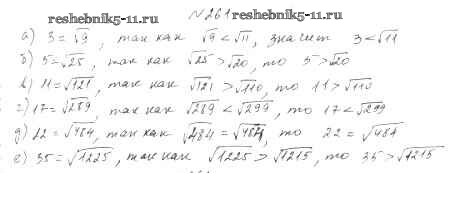 reshebnik5-11.ru №261 reshebnik5-11.ru
а) 3=√9, так как √9 < √11, значит 3<√11
б) 5=√25, так как √25 > √20, то 5>√20
в) 11=√121, так как √121 > √110, то 11 > √110
г) 17=√289, так как √289 < √299, то 17 < √299
д) 22=√484, так как √484 = √484, то 22 = √484
е) 35=√1225, так как √1225 > √1215, то 35 > √1215